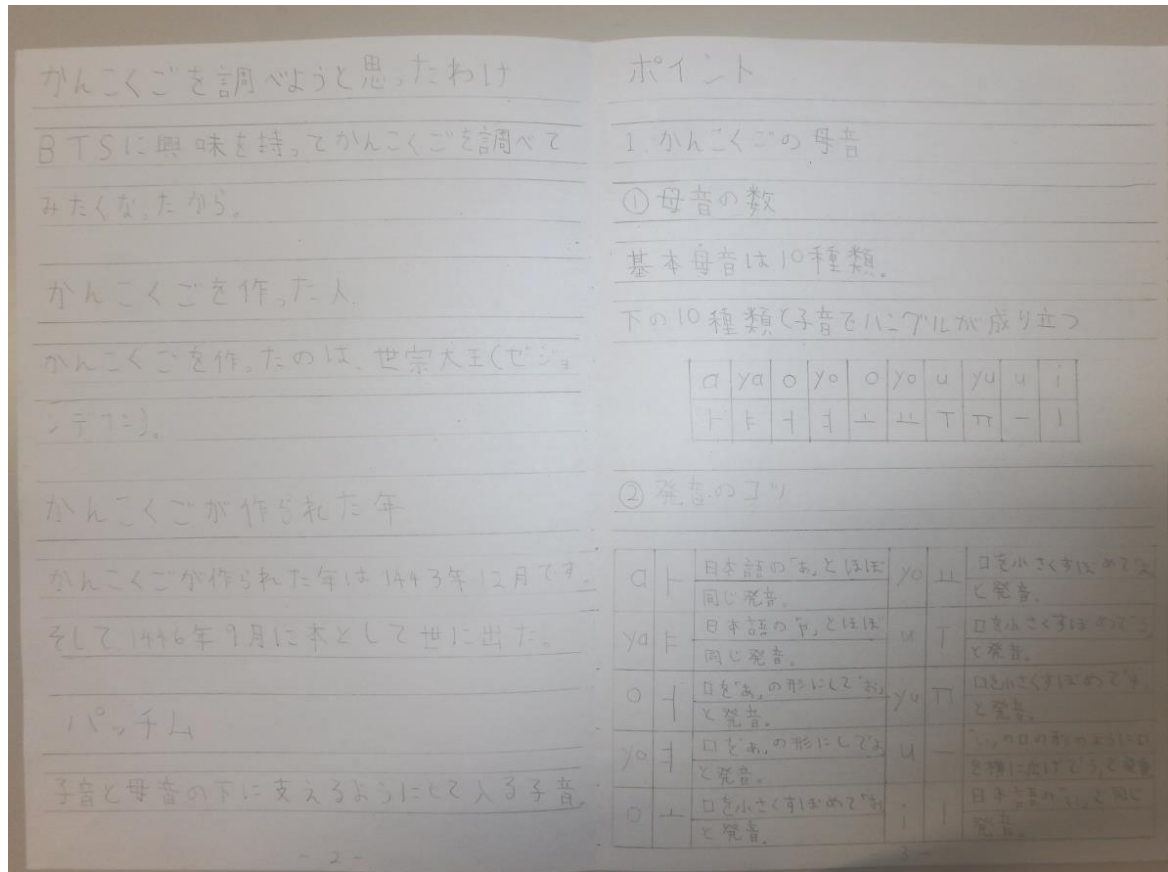 かんこくごを調べようと思ったわけ
BTSに興味を持ってかんこくごを調べて
みたくなったから。
かんこくごを作った人
かんこくごを作ったのは、世宗大王(セジョ
ンデワン)。
かんこくごが作られた年
かんこくごが作られた年は1443年12月です。
そして1446年9月に本として世に出た。
パッチム
子音と母音の下に支えるようにして入る子音。
- 2 -
ポイント
1. かんこくごの母音
①母音の数
基本母音は10種類。
下の10種類と子音でハングルが成り立つ
a ya o yo o yo u yu u i
ㅏ ㅑ ㅓ ㅕ ㅗ ㅛ ㅜ ㅠ ㅡ ㅣ
②発音のコツ
a ㅏ 日本語の「あ」とほぼ
同じ発音。
ya ㅑ 日本語の「や」とほぼ
同じ発音。
o ㅓ 口を「あ」の形にして「お」
と発音。
yo ㅕ 口を「あ」の形にして「よ」
と発音。
o ㅗ 口を小さくすぼめて「お」
と発音。
yo ㅛ 口を小さくすぼめて「よ」
と発音。
u ㅜ 口を小さくすぼめて「う」
と発音。
yu ㅠ 口を小さくすぼめて「ゆ」
と発音。
u ㅡ 「い」の口の形のように口
を横に広げて「う」と発音
i ㅣ 日本語の「い」と同じ
発音。
- 3 -